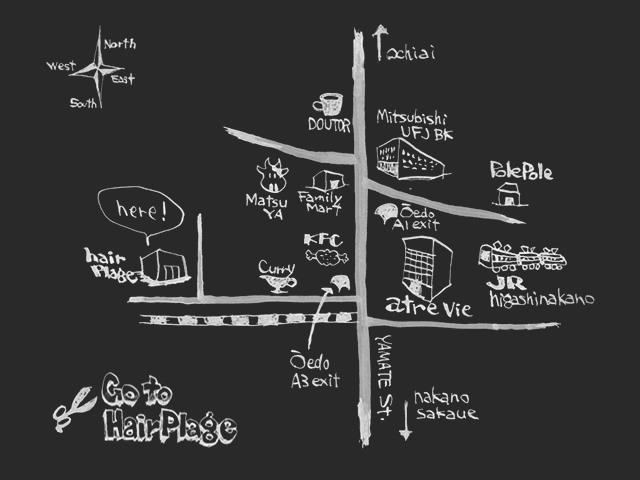 North
West
East
South
ochiai
DOUTOR
Mitsubishi
UFJ BK
PolePole
Matsu
YA
Family
Mart
Ōedo
A1 exit
here!
KFC
hair
Plage
Curry
atré Vie
JR
higashinakano
Ōedo
A3 exit
YAMATE St.
nakano
sakaue
Go to
Hair Plage